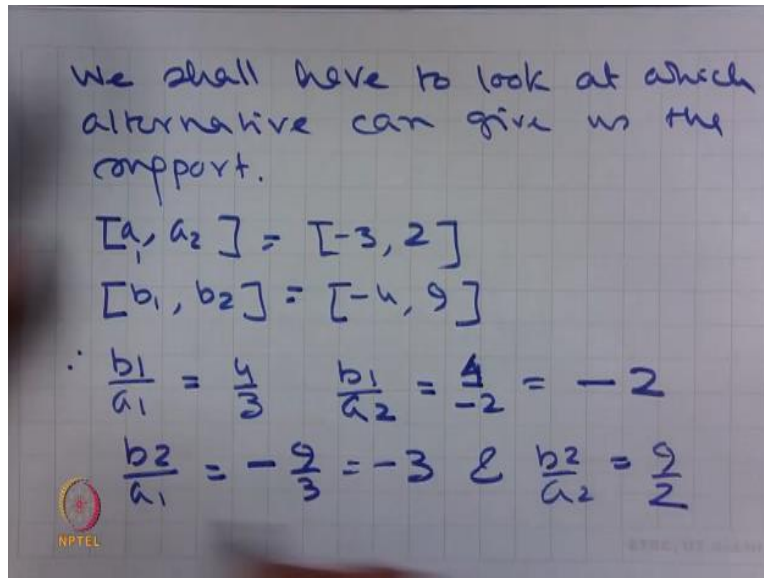 We shall have to look at which
alternative can give us the
support.
[a₁, a₂] = [-3, 2]
[b₁, b₂] = [-4, 9]
∴ b1/a1 = 4/3 b1/a2 = 4/-2 = -2
b2/a1 = -9/3 = -3 & b2/a2 = 9/2
NPTEL